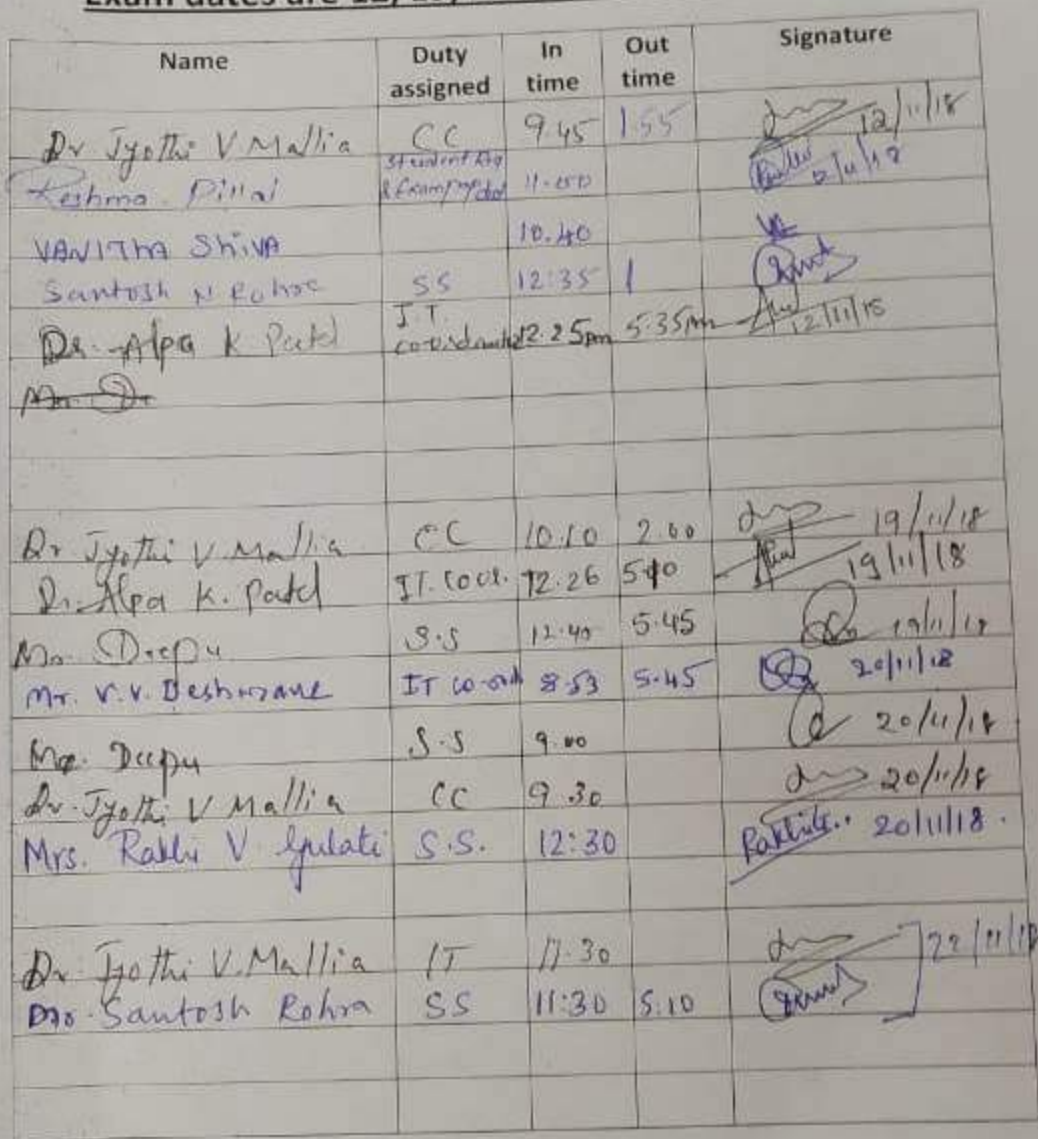 Exam dates are 12, 19,
Name Duty assigned In time Out time Signature
Dr Jyothi V Mallia CC 9.45 1.55 12/11/18
Reshma Pillai Student 12/11/18
VANITHA ShiVA 10.40
Santosh N Rohra SS 12:35 1
Dr. Alpa K Patel I.T. co-ordinator 12.25pm 5.35pm 12/11/18
Dr Jyothi V Mallia CC 10.10 2.00 19/11/18
Dr. Alpa K. Patel IT. coor. 12.26 19/11/18
Mr. Deepu S.S 12.40 5.45 19/11/18
Mr. V.V. Deshmane IT co-ord 8.53 5.45 20/11/18
Deepu S.S 9.00 20/11/18
Dr. Jyothi V Mallia CC 9.30 20/11/18
Mrs. Rakhi V Gulati S.S. 12:30 20/11/18.
Dr. Jyothi V. Mallia IT 11.30 22/11/18
Santosh Rohra SS 11:30 5:10